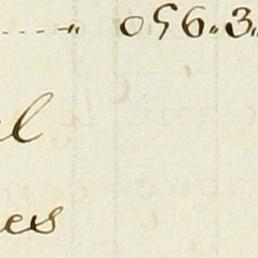 ....." 096"3"
el
es